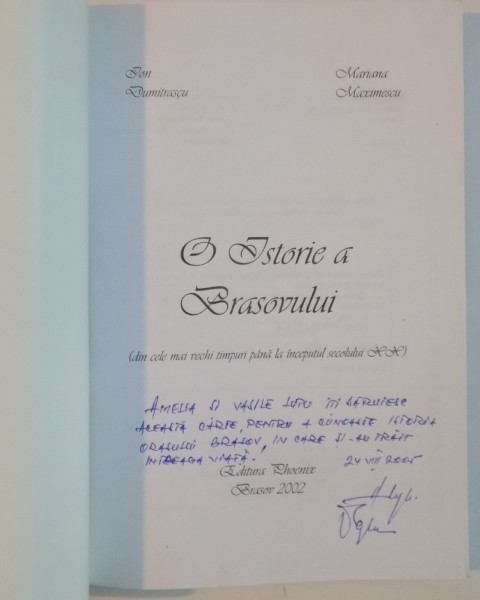 Ion
Dumitrașcu
Mariana
Maximescu
O Istorie a
Brasovului
(din cele mai vechi timpuri până la începutul secolului XX)
AMELIA SI VASILE ÎȚI DĂRUIESC
ACEASTĂ CARTE, PENTRU A CUNOAȘTE ISTORIA
ORAȘULUI BRAȘOV, IN CARE SI-AU TRĂIT
INTREAGA VIAȚĂ.
24 VIII 2005
Editura Phoenix
Brasov 2002